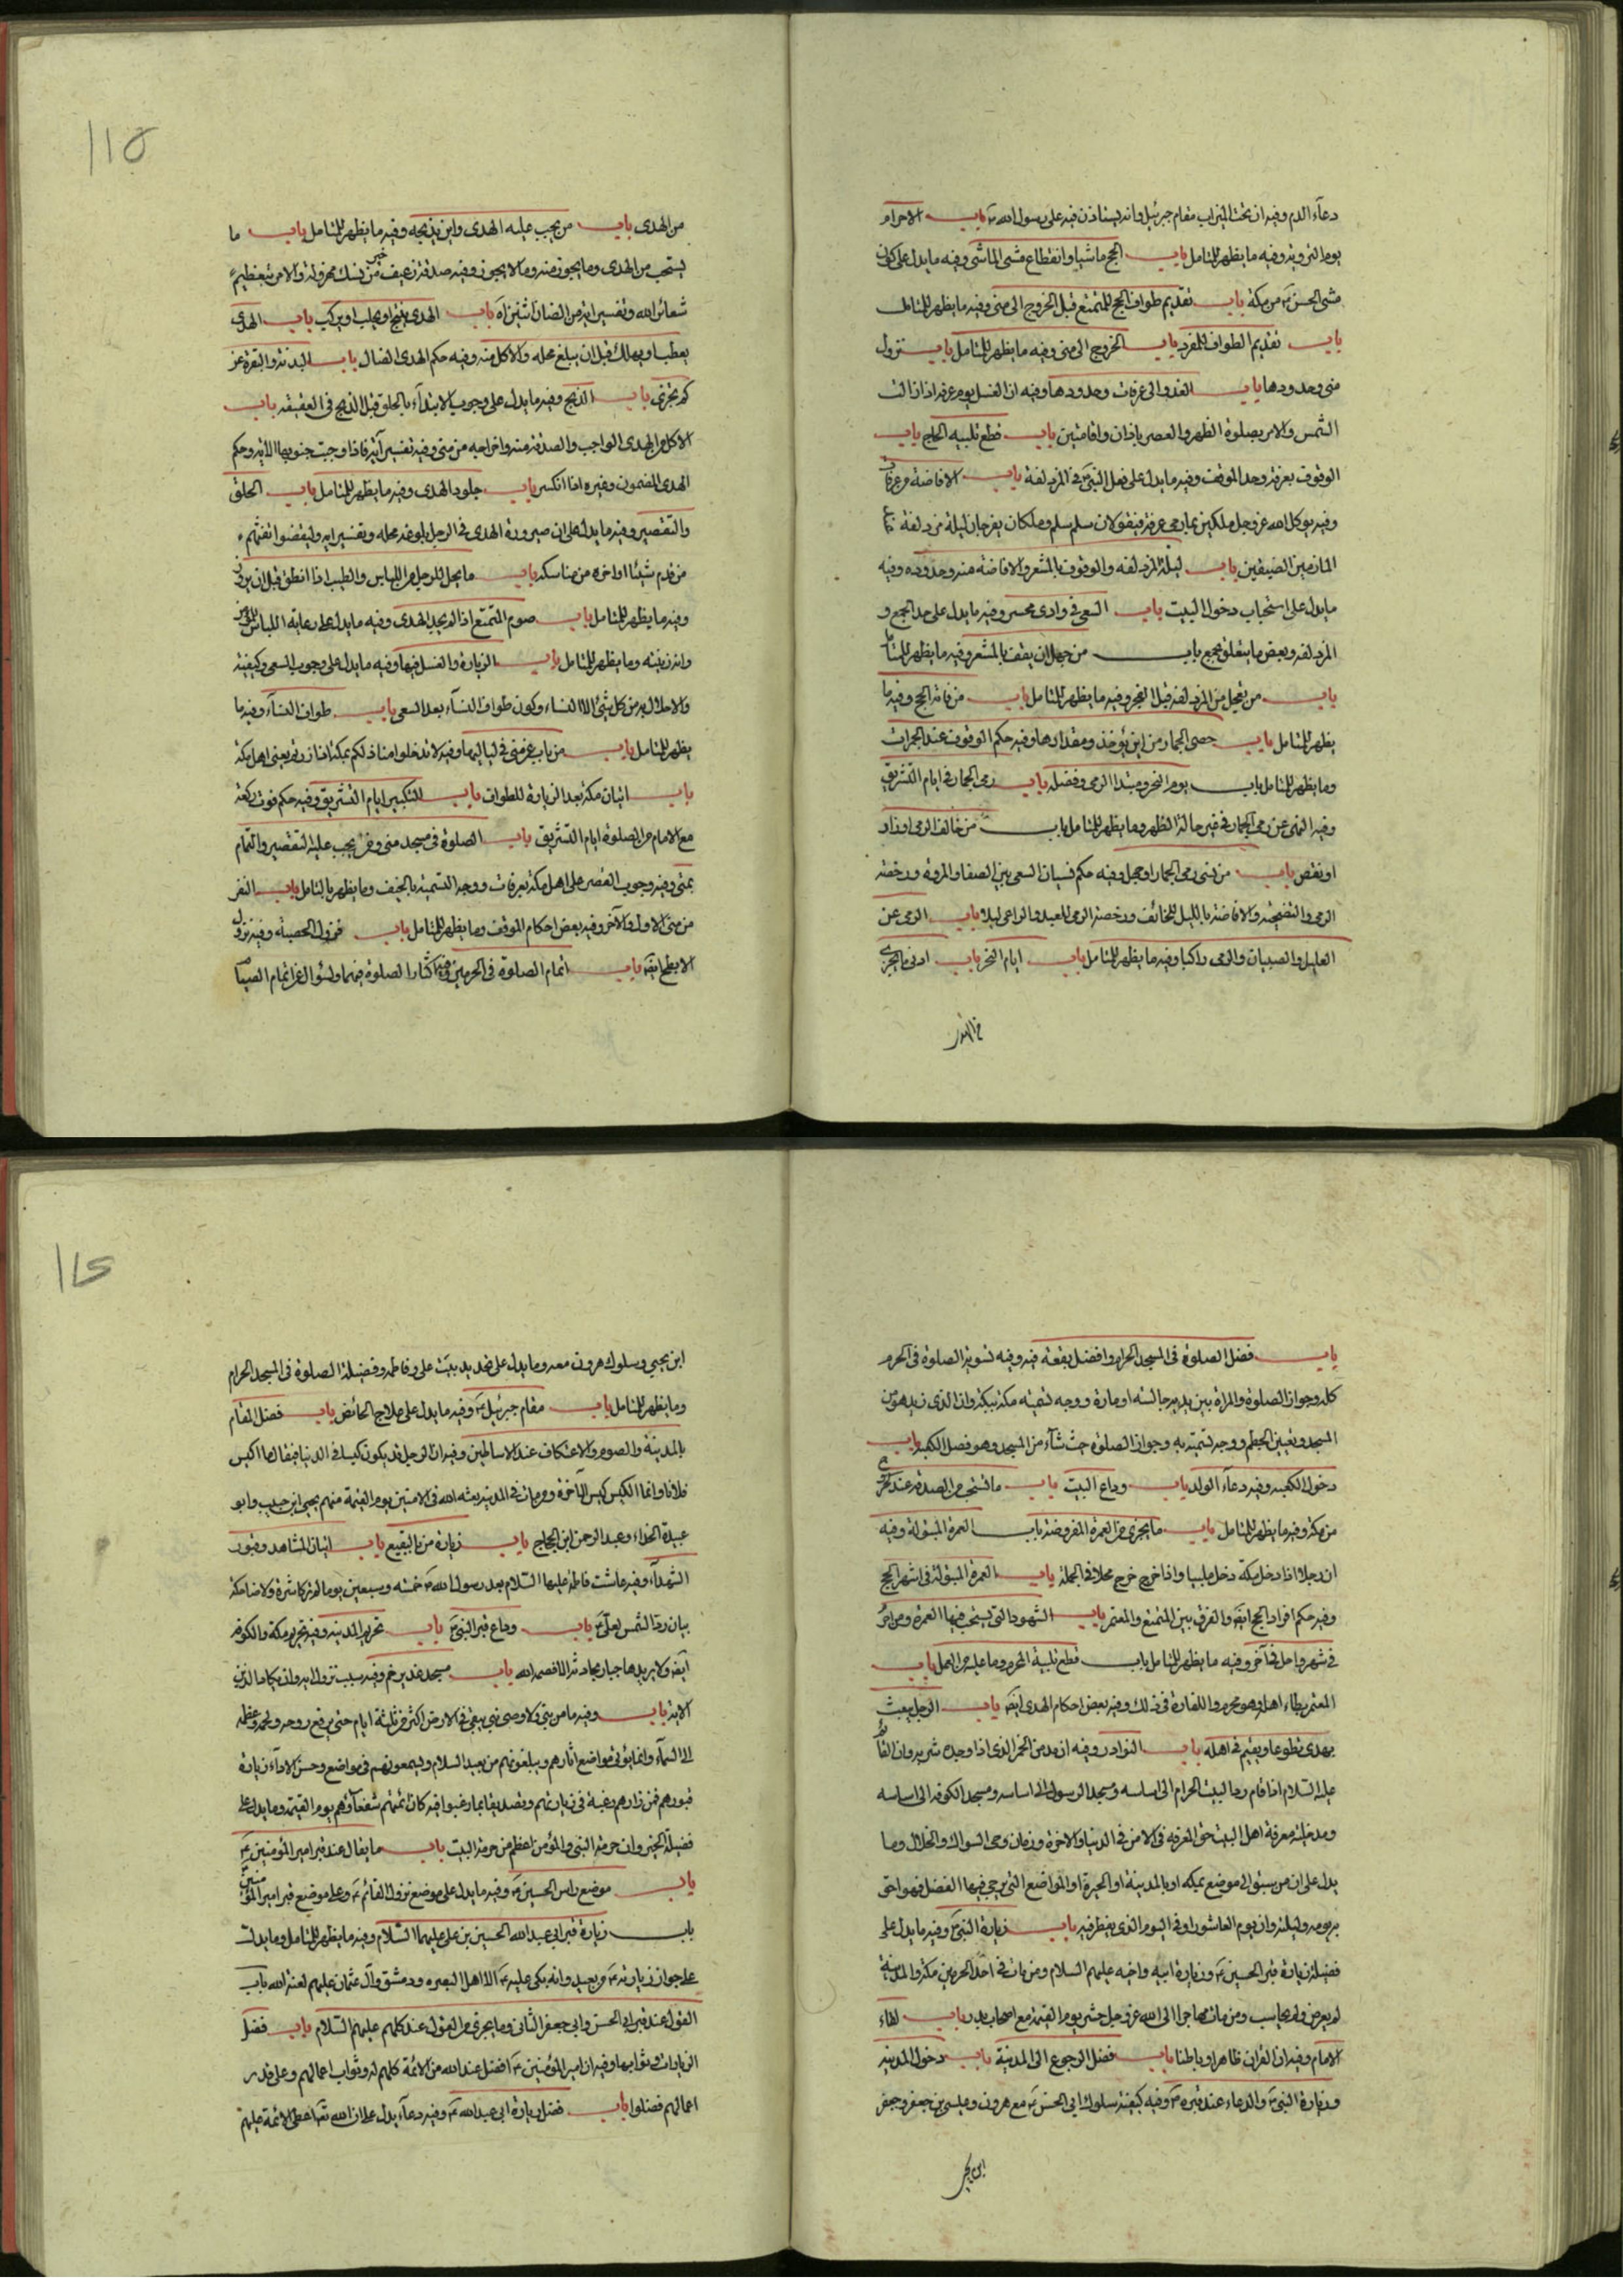 دعآء الدم وفيه ان تحت الميزاب مقام جبرئيل وانه يستاذن فيه على رسول الله ص باب الاحرام
يوم التروية وفيه ما يظهر للمتامل باب الحج ماشيا وانقطاع مشى الماشى وفيه ما يدل على كون
مشى الحسن ع من مكة باب تقديم طواف الحج للمتمتع قبل الخروج الى منى وفيه ما يظهر للمتامل
باب تقديم الطواف للمفرد باب الخروج الى منى وفيه ما يظهر للمتامل باب نزول
منى وحدودها باب الغدو الى عرفات وحدودها وفيه ان الغسل يوم عرفة اذا زالت
الشمس والامر بصلوة الظهر والعصر باذان واقامتين باب قطع تلبيه الحاج باب
الوقوف بعرفة وحد الموقف وفيه ما يدل على فعل النبى ص فى المزدلفة باب الافاضة من عرفات
وفيه يوكل الله عز وجل ملكين بمازمى عرفة فيقولان سلم سلم وملكان يفرجان ليلة مزدلفة
المازمين الضيقين باب ليلة المزدلفه والوقوف بالمشعر والافاضة منه وحدوده وفيه
ما يدل على استحباب دخول البيت باب السعى فى وادى محسر وفيه ما يدل على حد الجمع و
المزدلفه وبعض ما يتعلق بجمع باب من جهل ان يقف بالمشعر وفيه ما يظهر للمتامل
باب من تعجل من المزدلفة قبل الفجر وفيه ما يظهر للمتامل باب من فاته الحج وفيه ما
يظهر للمتامل باب حصى الجمار من اين يؤخذ ومقدارها وفيه حكم الوقوف عند الجمرات
وما يظهر للمتامل باب يوم النحر ومبتدا الرمى وفضله باب رمى الجمار فى ايام التشريق
وفيه النهى عن رمى الجمار فى غير حالة الطهر وما يظهر للمتامل باب من خالف الرمى او زاد
او نقص باب من نسى رمى الجمار او جهل وفيه حكم نسيان السعى بين الصفا والمروة ورخصة
الرمى والتضحية والافاضة بالليل للخائف ورخصة الرمى للعبد والراعى ليلا باب الرمى عن
العليل والصبيان والرمى راكبا وفيه ما يظهر للمتامل باب ايام النحر باب ادنى ما يجزى
من الهدى
115
من الهدى باب من يجب عليه الهدى واين يذبحه وفيه ما يظهر للمتامل باب ما
يستحب من الهدى وما يجوز منه وما لا يجوز وفيه صدقة رغيف خير من نسك مهزولة والامر بتعظيم
شعائر الله وتفسير اية من الضان اثنين اه باب الهدى ينتج او يحلب او يركب باب الهدى
يعطب او يهلك قبل ان يبلغ محله والاكل منه وفيه حكم الهدى الضال باب البدنة والبقرة عن
كم تجزى باب الذبح وفيه ما يدل على وجوب الابتدآء بالحلق قبل الذبح فى العقيقه باب
الاكل من الهدى الواجب والصدقة منه واخراجه من منى وفيه تفسير آية فاذا وجبت جنوبها الاية وحكم
الهدى المضمون وغيره اذا انكسر باب جلود الهدى وفيه ما يظهر للمتامل باب الحلق
والتقصير وفيه ما يدل على ان صيرورة الهدى فى الرحل بلوغه محله وتفسير اية وليقضوا تفثهم
من قدم شيئا او اخره من مناسكه باب ما يحل للرجل من اللباس والطيب اذا حلق قبل ان يزور
وفيه ما يظهر للمتامل باب صوم المتمتع اذا لم يجد الهدى وفيه ما يدل على رعاية اللباس
وانه زينة وما يظهر للمتامل باب الزيارة والغسل فيها وفيه ما يدل على وجوب السعى وكيفية
والاحلال به من كل شئ الا النساء وكون طواف النسآء بعد السعى باب طواف النسآء وفيه ما
يظهر للمتامل باب من بات عن منى فى لياليها وفيه لا تدخلوا منازلكم بمكة اذا زرتم يعنى اهل مكة
باب اتيان مكة بعد الزيارة للطواف باب التكبير ايام التشريق وفيه حكم فوت ركعة
مع الامام من الصلوة ايام التشريق باب الصلوة فى مسجد منى ومن يجب عليه التقصير والتمام
بمنى وفيه وجوب القصر على اهل مكة بعرفات ووجه التسمية بالخيف وما يظهر بالتامل باب النفر
من منى الاول والآخر وفيه بعض احكام الموقف وما يظهر للمتامل باب نزول الحصبة وفيه نزول
الابطح ايضا باب اتمام الصلوة فى الحرمين وفيه اكثار الصلوة فيهما والسؤال عن اتمام الصيام
باب فضل الصلوة فى المسجد الحرام وافضل بقعة فيه وفيه تسوية الصلوة فى الحرم
كله وجواز الصلوة والمراة بين يديه جالسه او مارة ووجه تسميه مكة ببكة وان الذى زيد هو من
المسجد وتعيين الحطيم ووجه تسميته به وجواز الصلوة حيث شآء من المسجد وهو فصل الكعبه باب
دخول الكعبه وفيه دعآء الولد باب وداع البيت باب ما تستحب من الصدقة عند الخروج
من مكة وفيه ما يظهر للمتامل باب ما يجزى من العمرة المفروضة باب العمرة المبتولة وفيه
ان رجلا اذا دخل مكة دخل ملبيا واذا خرج خرج محلا فى الجملة باب العمرة المبتولة فى اشهر الحج
وفيه حكم افراد الحج ايضا والفرق بين المتمتع والمعتمر باب الشهور التى تستحب فيها العمرة ومن احرم
فى شهر واحل فى آخر وفيه ما يظهر للمتامل باب قطع تلبية المحرم وما عليه من العمل باب
المعتمر يطاء اهله وهو محرم والكفارة فى ذلك وفيه بعض احكام الهدى ايضا باب الرجل يبعث
بهدى تطوعا ويقيم فى اهله باب النوادر وفيه ان مدمن الخمر الذى اذا وجده شربه وان القائم
عليه السلام اذا قام رد البيت الحرام الى اساسه ومسجد الرسول الى اساسه ومسجد الكوفه الى اساسه
ومدخلية معرفة اهل البيت حق المعرفة فى الامن فى الدنيا والاخرة وزمان وحى السواك والخلال وما
يدل على ان من سبق الى موضع بمكه او بالمدينة او الحيرة او المواضع التى يرجى فيها الفضل فهو احق
به يومه وليلته وان يوم العاشورا وفى اليوم الذى يفطر فيه باب زيارة النبى ص وفيه ما يدل على
فضيلة زيارة قبر الحسين ع وزيارة ابيه واخيه عليهم السلام ومن مات فى احد الحرمين مكة والمدينة
لم يعرض ولم يحاسب ومن مات مهاجرا الى الله عز وجل حشر يوم القيمة مع اصحاب بدر باب لقاء
الامام وفيه ان القران ظاهرا وباطنا باب فضل الرجوع الى المدينة باب دخول المدينه
وزيارة النبى ص والدعاء عند قبره ص وفيه كيفية سلوك ابى الحسن ع مع هرون وعيسى بن جعفر وجعفر
ابن يحيى
116
ابن يحيى وسلوك هرون معه وما يدل على تحديد بيت على وفاطمه وفضيلة الصلوة فى المسجد الحرام
وما يظهر للمتامل باب مقام جبرئيل ع وفيه ما يدل على علاج الحائض باب فضل المقام
بالمدينة والصوم والاعتكاف عند الاساطين وفيه ان الرجل قد يكون كيسا فى الدنيا فيقال ما اكيس
فلانا وانما الكيس كيس الآخرة ومن مات فى المدينة بعثه الله فى الامنين يوم القيمة منهم يحيى ابن حبيب وابو
عبيدة الحذاء وعبد الرحمن ابن الحجاج باب زيارة من بالبقيع باب اتيان المشاهد وقبور
الشهدآء وفيه عاشت فاطمة عليها السلام بعد رسول الله ص خمسه وسبعين يوما لم تر كاشرة ولا ضاحكة
بيان رد الشمس لعلى ع باب وداع قبر النبى ص باب تحريم المدينه وفيه تحريم مكة والكوفه
ايضا ولا يريدها جبار بحادثة الا قصمه الله باب مسجد غدير خم وفيه سبب نزول اية وان يكاد الذين
الاية باب وفيه ما من نبى ولا وصى نبى يبقى فى الارض اكثر من ثلثة ايام حتى يرفع روحه ولحمه وعظمه
الى السمآء وانما يؤتى مواضع اثارهم ويبلغونهم من بعيد السلام ويسمعونهم فى مواضع وحسن الادآء زيارة
قبورهم فمن زارهم رغبة فى زيارتهم وتصديقا بما رغبوا فيه كان ائمتهم شفعآؤهم يوم القيمة وما يدل على
فضيلة الخير وان حرمة النبى والمؤمن اعظم من حرمة البيت باب ما يقال عند قبر امير المؤمنين ع
باب موضع راس الحسين ع وفيه ما يدل على موضع نزول القائم ع وعلى موضع قبر امير المؤمنين
باب زيارة قبر ابى عبد الله الحسين بن على عليهما السلام وفيه ما يظهر للمتامل وما يدل
على جواز زيارته ع من بعيد وانه بكى عليه ع الا اهل البصره ودمشق وآل عثمان عليهم لعنة الله باب
القول عند قبر ابى الحسن وابى جعفر الثانى وما يجزى من القول عند كلهم عليهم السلام باب فضل
الزيارات وثوابها وفيه ان امير المؤمنين ع افضل عند الله من الائمة كلهم وله ثواب اعمالهم وعلى قدر
اعمالهم فضلوا باب فضل زيارة ابى عبد الله ع وفيه دعآء يدل على ان الله تعا اعطى الائمة عليهم